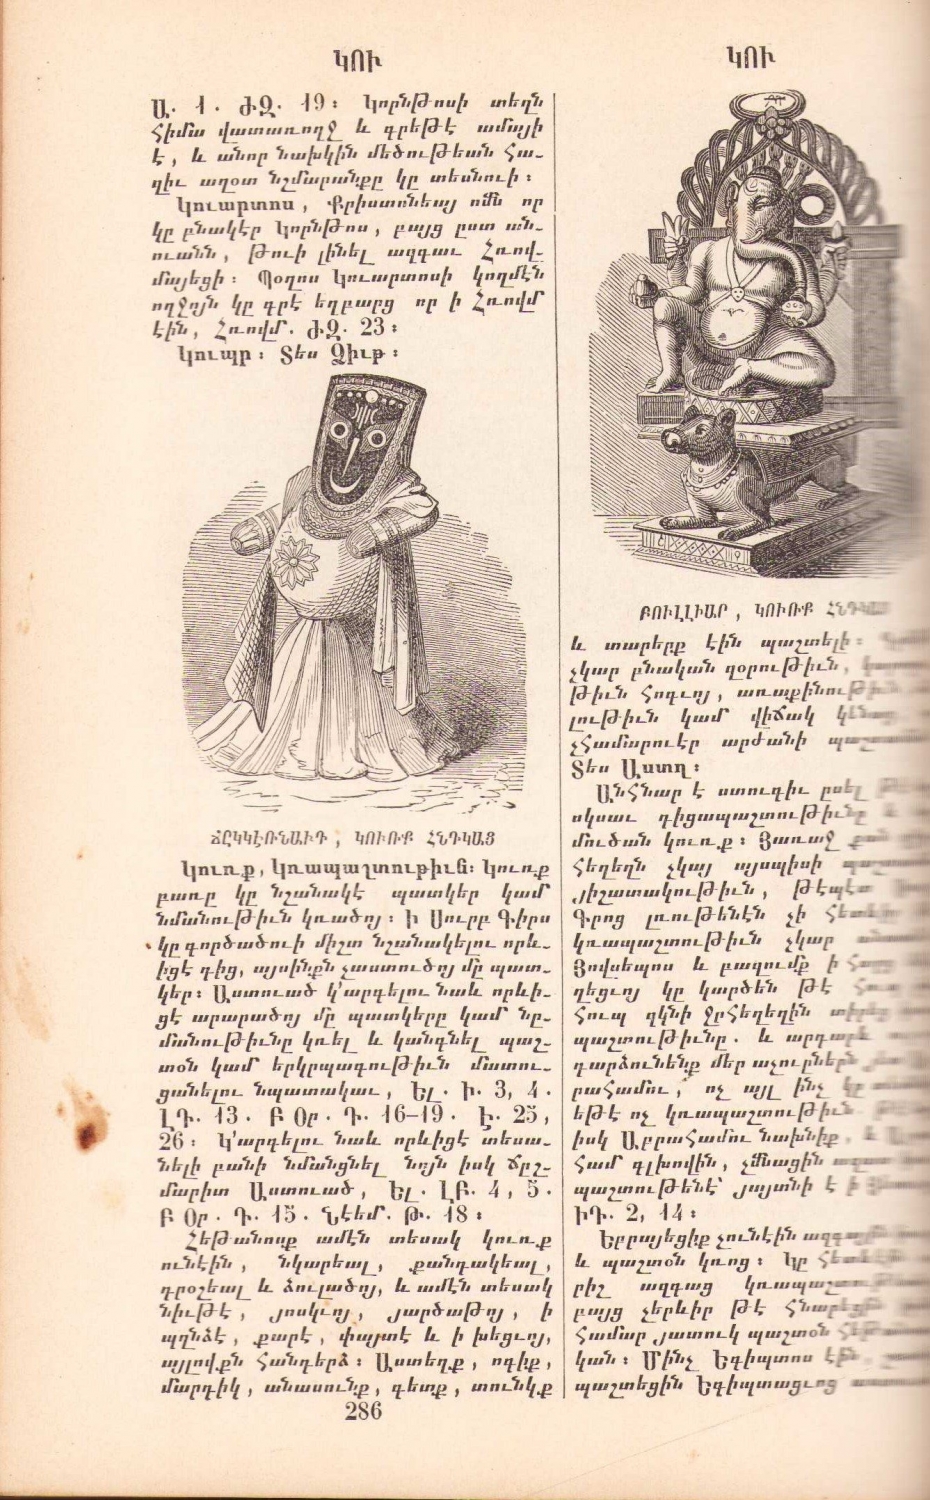 ԿՈՒ
Ա. 1. ԺԶ. 19։ Կորնթոսի տեղն
հիմա վատառողջ և գրեթէ ամայի
է, և անոր նախկին մեծութեան հա-
ղիւ աղօտ նշմարանքը կը տեսնուի։
Կուարտոս, Քրիստոնեայ ոմն որ
կը բնակէր Կորնթոս, բայց ըստ ան-
ուանն, թուի լինել ազգաւ Հռով-
մայեցի։ Պօղոս Կուարտոսի կողմէն
ողջոյն կը գրէ եղբարց որ ի Հռովմ
էին, Հռովմ. ԺԶ. 23։
Կուպր։ Տես Ձիւթ։
ՃԸԿԿԷՌՆԱՒԴ, ԿՈՒՌՔ ՀՆԴԿԱՑ
Կուռք, Կռապաշտութիւն։ Կուռք
բառը կը նշանակէ պատկեր կամ
նմանութիւն կռածոյ։ Ի Սուրբ Գիրս
կը գործածուի միշտ նշանակելու որև-
իցէ դից, այսինքն չաստուծոյ մը պատ-
կեր։ Աստուած կ՚արգելու նաև որևի-
ցէ արարածոյ մը պատկերը կամ նը-
մանութիւնը կռել և կանգնել պաշ-
տօն կամ երկրպագութիւն մատու-
ցանելու նպատակաւ, Ել. Ի. 3, 4.
ԼԴ. 13. Բ Օր. Դ. 16–19. Է. 25,
26։ Կ՚արգելու նաև որևիցէ տեսա-
նելի բանի նմանցնել նոյն իսկ ճըշ-
մարիտ Աստուած, Ել. ԼԲ. 4, 5.
Բ Օր. Դ. 15. Նէեմ. Թ. 18։
Հեթանոսք ամէն տեսակ կուռք
ունէին, նկարեալ, քանդակեալ,
դրօշեալ և ձուլածոյ, և ամէն տեսակ
նիւթէ, յոսկւոյ, յարծաթոյ, ի
պղնձէ, քարէ, փայտէ և ի խեցւոյ,
այլովքն հանդերձ։ Աստեղք, ոգիք,
մարդիկ, անասունք, գետք, տունկք
286
ԿՈՒ
ԲՈՒԼԼԻԱՐ, ԿՈՒՌՔ
և տարերք էին պաշտելի։
չկար բնական զօրութիւն,
թիւն հոգւոյ, առաքինութիւն
լութիւն կամ վիճակ կենաց
չհամարուէր արժանի
Տես Աստղ։
Անհնար է ստուգիւ ըսել
սկսաւ դիցապաշտութիւնը
մուծան կուռք։ Յառաջ քան
հեղեղն չկայ այսպիսի
յիշատակութիւն, թէպէտ
Գրոց լռութենէն չի
կռապաշտութիւն չկար
Յովսեպոս և բազումք ի
ղեցւոյ կը կարծեն թէ
հուպ զկնի ջրհեղեղին
պաշտութիւնը. և արդարև
դարձունենք մեր աչուըներն
բահամու, ոչ այլ ինչ կը
եթէ ոչ կռապաշտութիւն
իսկ Աբրահամու նախնիք, և
համ գլխովին, չմնացին
պաշտութենէ՝ յայտնի է ի
ԻԴ. 2, 14։
Եբրայեցիք չունէին
և պաշտօն կռոց։ Կը
րիշ ազգաց
բայց չերևիր թէ
համար յատուկ պաշտօն
կան։ Մինչ Եգիպտոս էին,
պաշտեցին Եգիպտացւոց